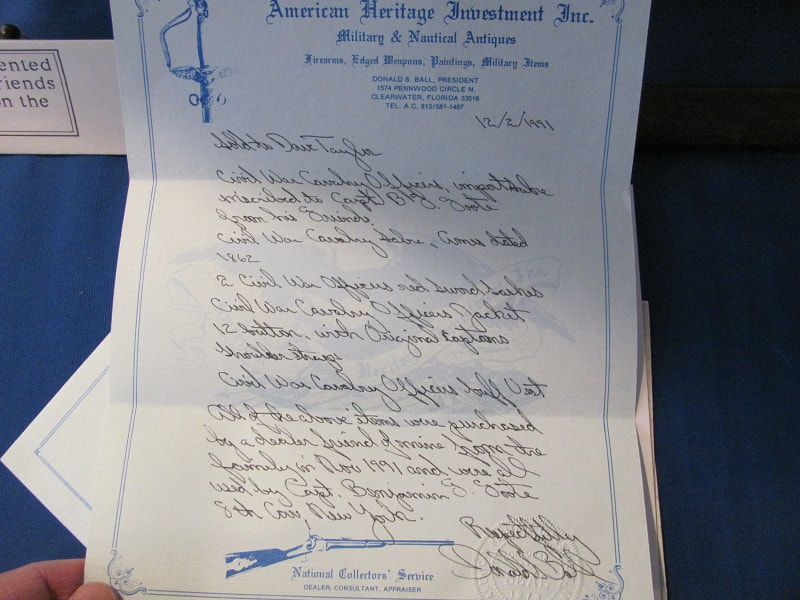 ented
riends
on the
American Heritage Investment Inc.
Military & Nautical Antiques
Firearms, Edged Weapons, Paintings, Military Items
DONALD S. BALL, PRESIDENT
1574 PENNWOOD CIRCLE N.
CLEARWATER, FLORIDA 33516
TEL. A.C. 813/581-1487
12/2/1991
Sold to Dave Taylor
Civil War Cavalry Officers, import sabre
inscribed to Capt. B. F. Foote
from his Friends
Civil War Cavalry Sabre, Ames dated
1862
2 Civil War Officers red sword sashes
Civil War Cavalry Officers Jacket
12 button, with Original Captains
Shoulder straps
Civil War Cavalry Officers buff Vest
All of the above items were purchased
by a dealer friend of mine from the
family in Nov 1991 and were all
used by Capt. Benjamin F. Foote
8th Cav, New York.
Respectfully
Donald S. Ball
National Collectors' Service
DEALER, CONSULTANT, APPRAISER